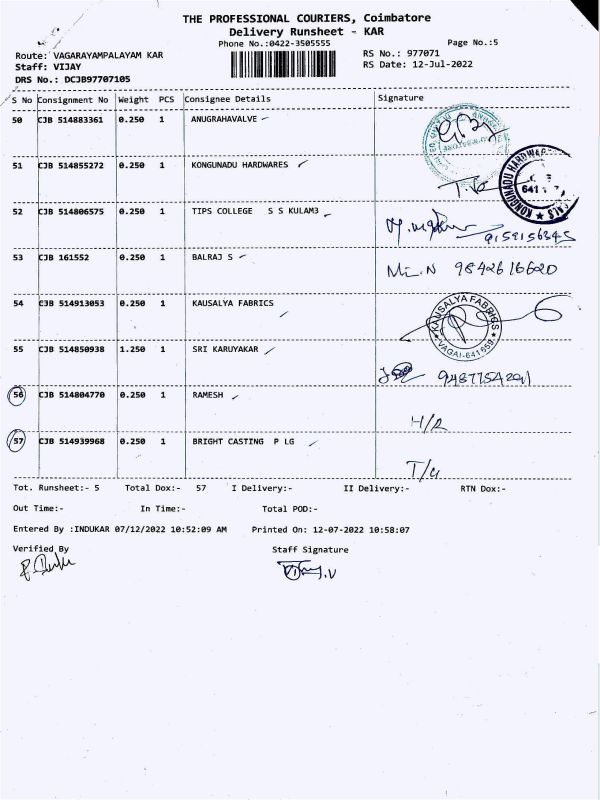 THE PROFESSIONAL COURIERS, Coimbatore
Delivery Runsheet - KAR
Phone No.:0422-3505555
Page No.:5
Route: VAGARAYAMPALAYAM KAR
RS No.: 977071
Staff: VIJAY
RS Date: 12-Jul-2022
DRS No.: DCJB97707105
S No Consignment No Weight PCS Consignee Details Signature
50 CJB 514883361 0.250 1 ANUGRAHAVALVE
51 CJB 514855272 0.250 1 KONGUNADU HARDWARES
KONGUNADU HARDWAR
52 CJB 514806575 0.250 1 TIPS COLLEGE S S KULAM3
9159156345
53 CJB 161552 0.250 1 BALRAJ S
9842616620
54 CJB 514913053 0.250 1 KAUSALYA FABRICS
KAUSALYA FABRICS
VAGAI-641659
55 CJB 514850938 1.250 1 SRI KARUYAKAR
9487754291
56 CJB 514804770 0.250 1 RAMESH
H/R
57 CJB 514939968 0.250 1 BRIGHT CASTING P LG
Tot. Runsheet:- 5 Total Dox:- 57 I Delivery:- II Delivery:- RTN Dox:-
Out Time:- In Time:- Total POD:-
Entered By :INDUKAR 07/12/2022 10:52:09 AM Printed On: 12-07-2022 10:58:07
Verified By Staff Signature